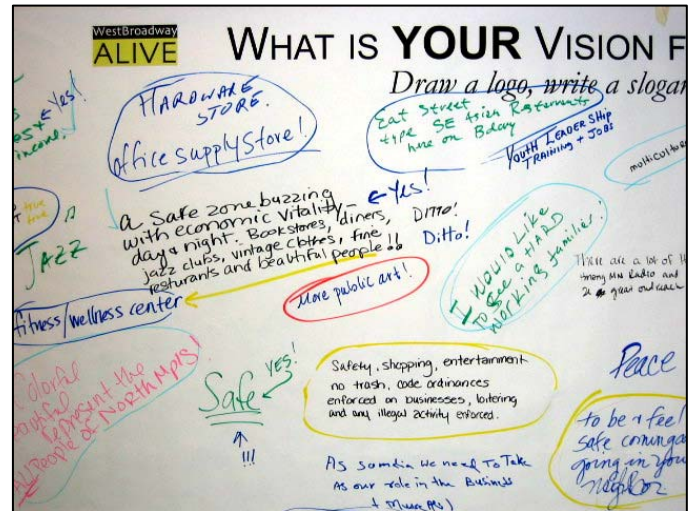 WestBroadway
ALIVE
WHAT IS YOUR VISION F
Draw a logo, write a slogan
Yes!
income.
HARDWARE
STORE.
Office Supply Store!
Eat Street
type SE Asian Resturants
here on Bdway
YOUTH LEADERSHIP
TRAINING + JOBS
multicultur
true
true
JAZZ
a safe zone buzzing
with economic vitality—
day & night. Bookstores, diners,
jazz clubs, vintage clothes, fine
resturants and beautiful people!!
Yes!
Ditto!
Ditto!
fitness/wellness center
More public art!
I WOULD LIKE
TO SEE a HARD
WORKING families!
There are a lot of
among MN Radio and
great outreach
Colorful
Beautiful
Represent the
ALL People of North Mpls!
Safe
YES!
!!!
Safety, shopping, entertainment
no trash, code ordinances
enforced on businesses, loitering
and any illegal activity enforced.
Peace
to be & feel
safe coming a
going in you
neighbor
As somdia we need To Take
As our role in the